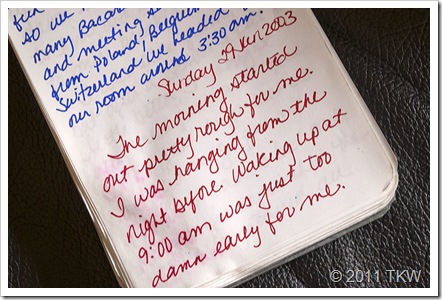 so we
many Bacar
and meeting
from Poland, Belguim
Switzerland we headed
our room around 3:30 am.
Sunday 29 Jun 2003
The morning started
out pretty rough for me.
I was hanging from the
night before. Waking up at
9:00 am was just too
damn early for me.
© 2011 TKW